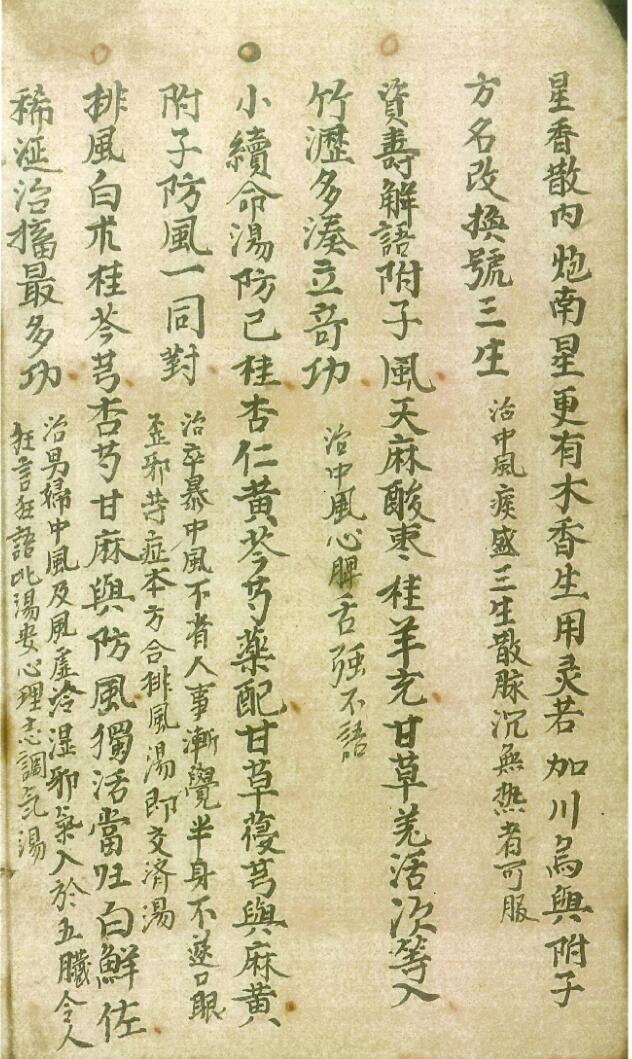 星香散内炮南星更有木香生用灵若加川烏與附子
方名改換號三生
治中風痰盛三生散脉沉無熱者可服
資壽解語附子風天麻酸枣桂羊充甘草羌活次等入
竹瀝多湊立奇功
治中風心脾舌强不語
小續命湯防已桂杏仁黄芩芍藥配甘草蓡芎與麻黄
附子防風一同對
治卒暴中風不省人事漸覺半身不遂口眼
歪邪等症本方合排風湯即交濟湯
排風白朮桂芩芎杏芍甘麻與防風獨活當归白鮮佐
稀涎治搐最多功
治男婦中風及風虛冷湿邪氣入於五臟令人
狂言狂語此湯安心理志調气湯